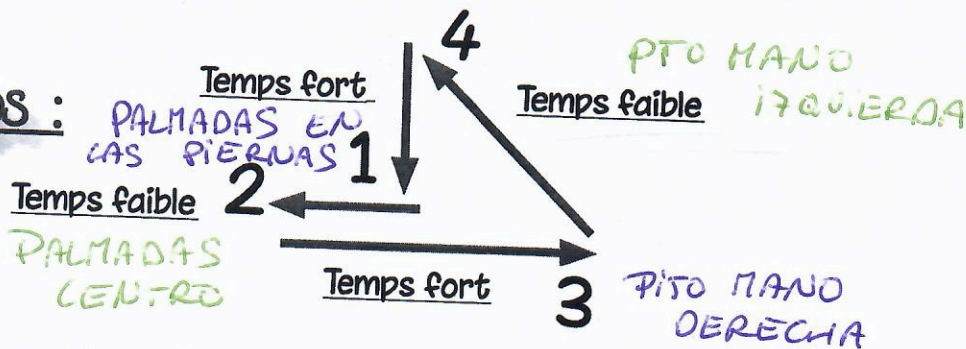 4
PTO MANO
IZQUIERDA
Temps fort
Temps faible
PALMADAS EN
LAS PIERNAS
1
Temps faible
2
PALMADAS
CENTRO
Temps fort
3
PITO MANO
DERECHA